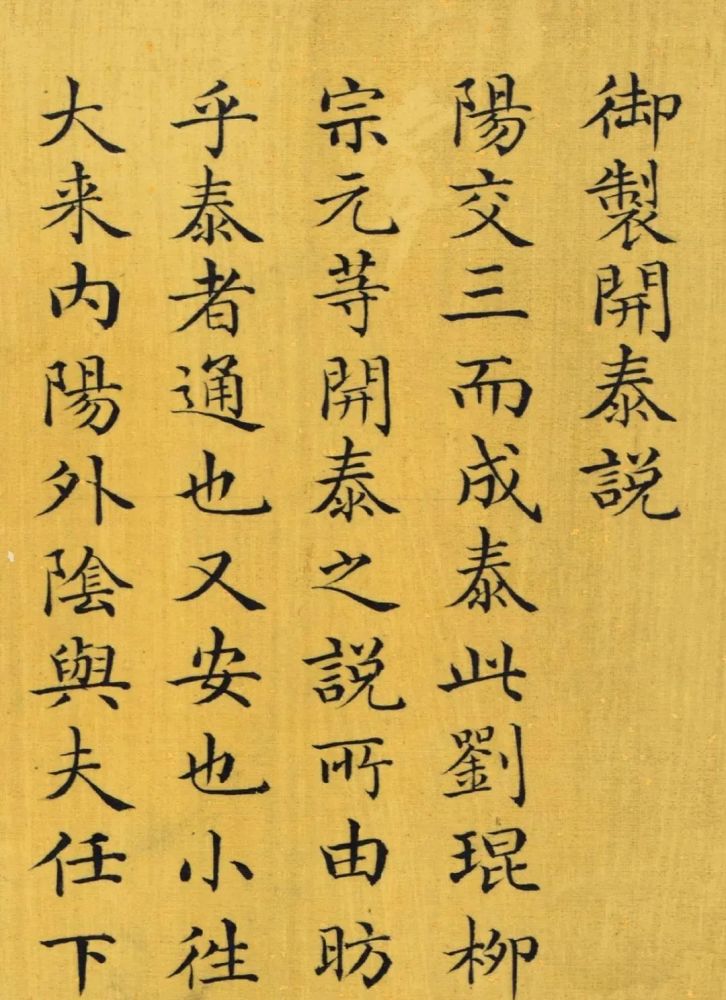 御製開泰説
陽交三而成泰此劉琨柳
宗元等開泰之説所由昉
乎泰者通也又安也小徃
大来内陽外陰與夫任下